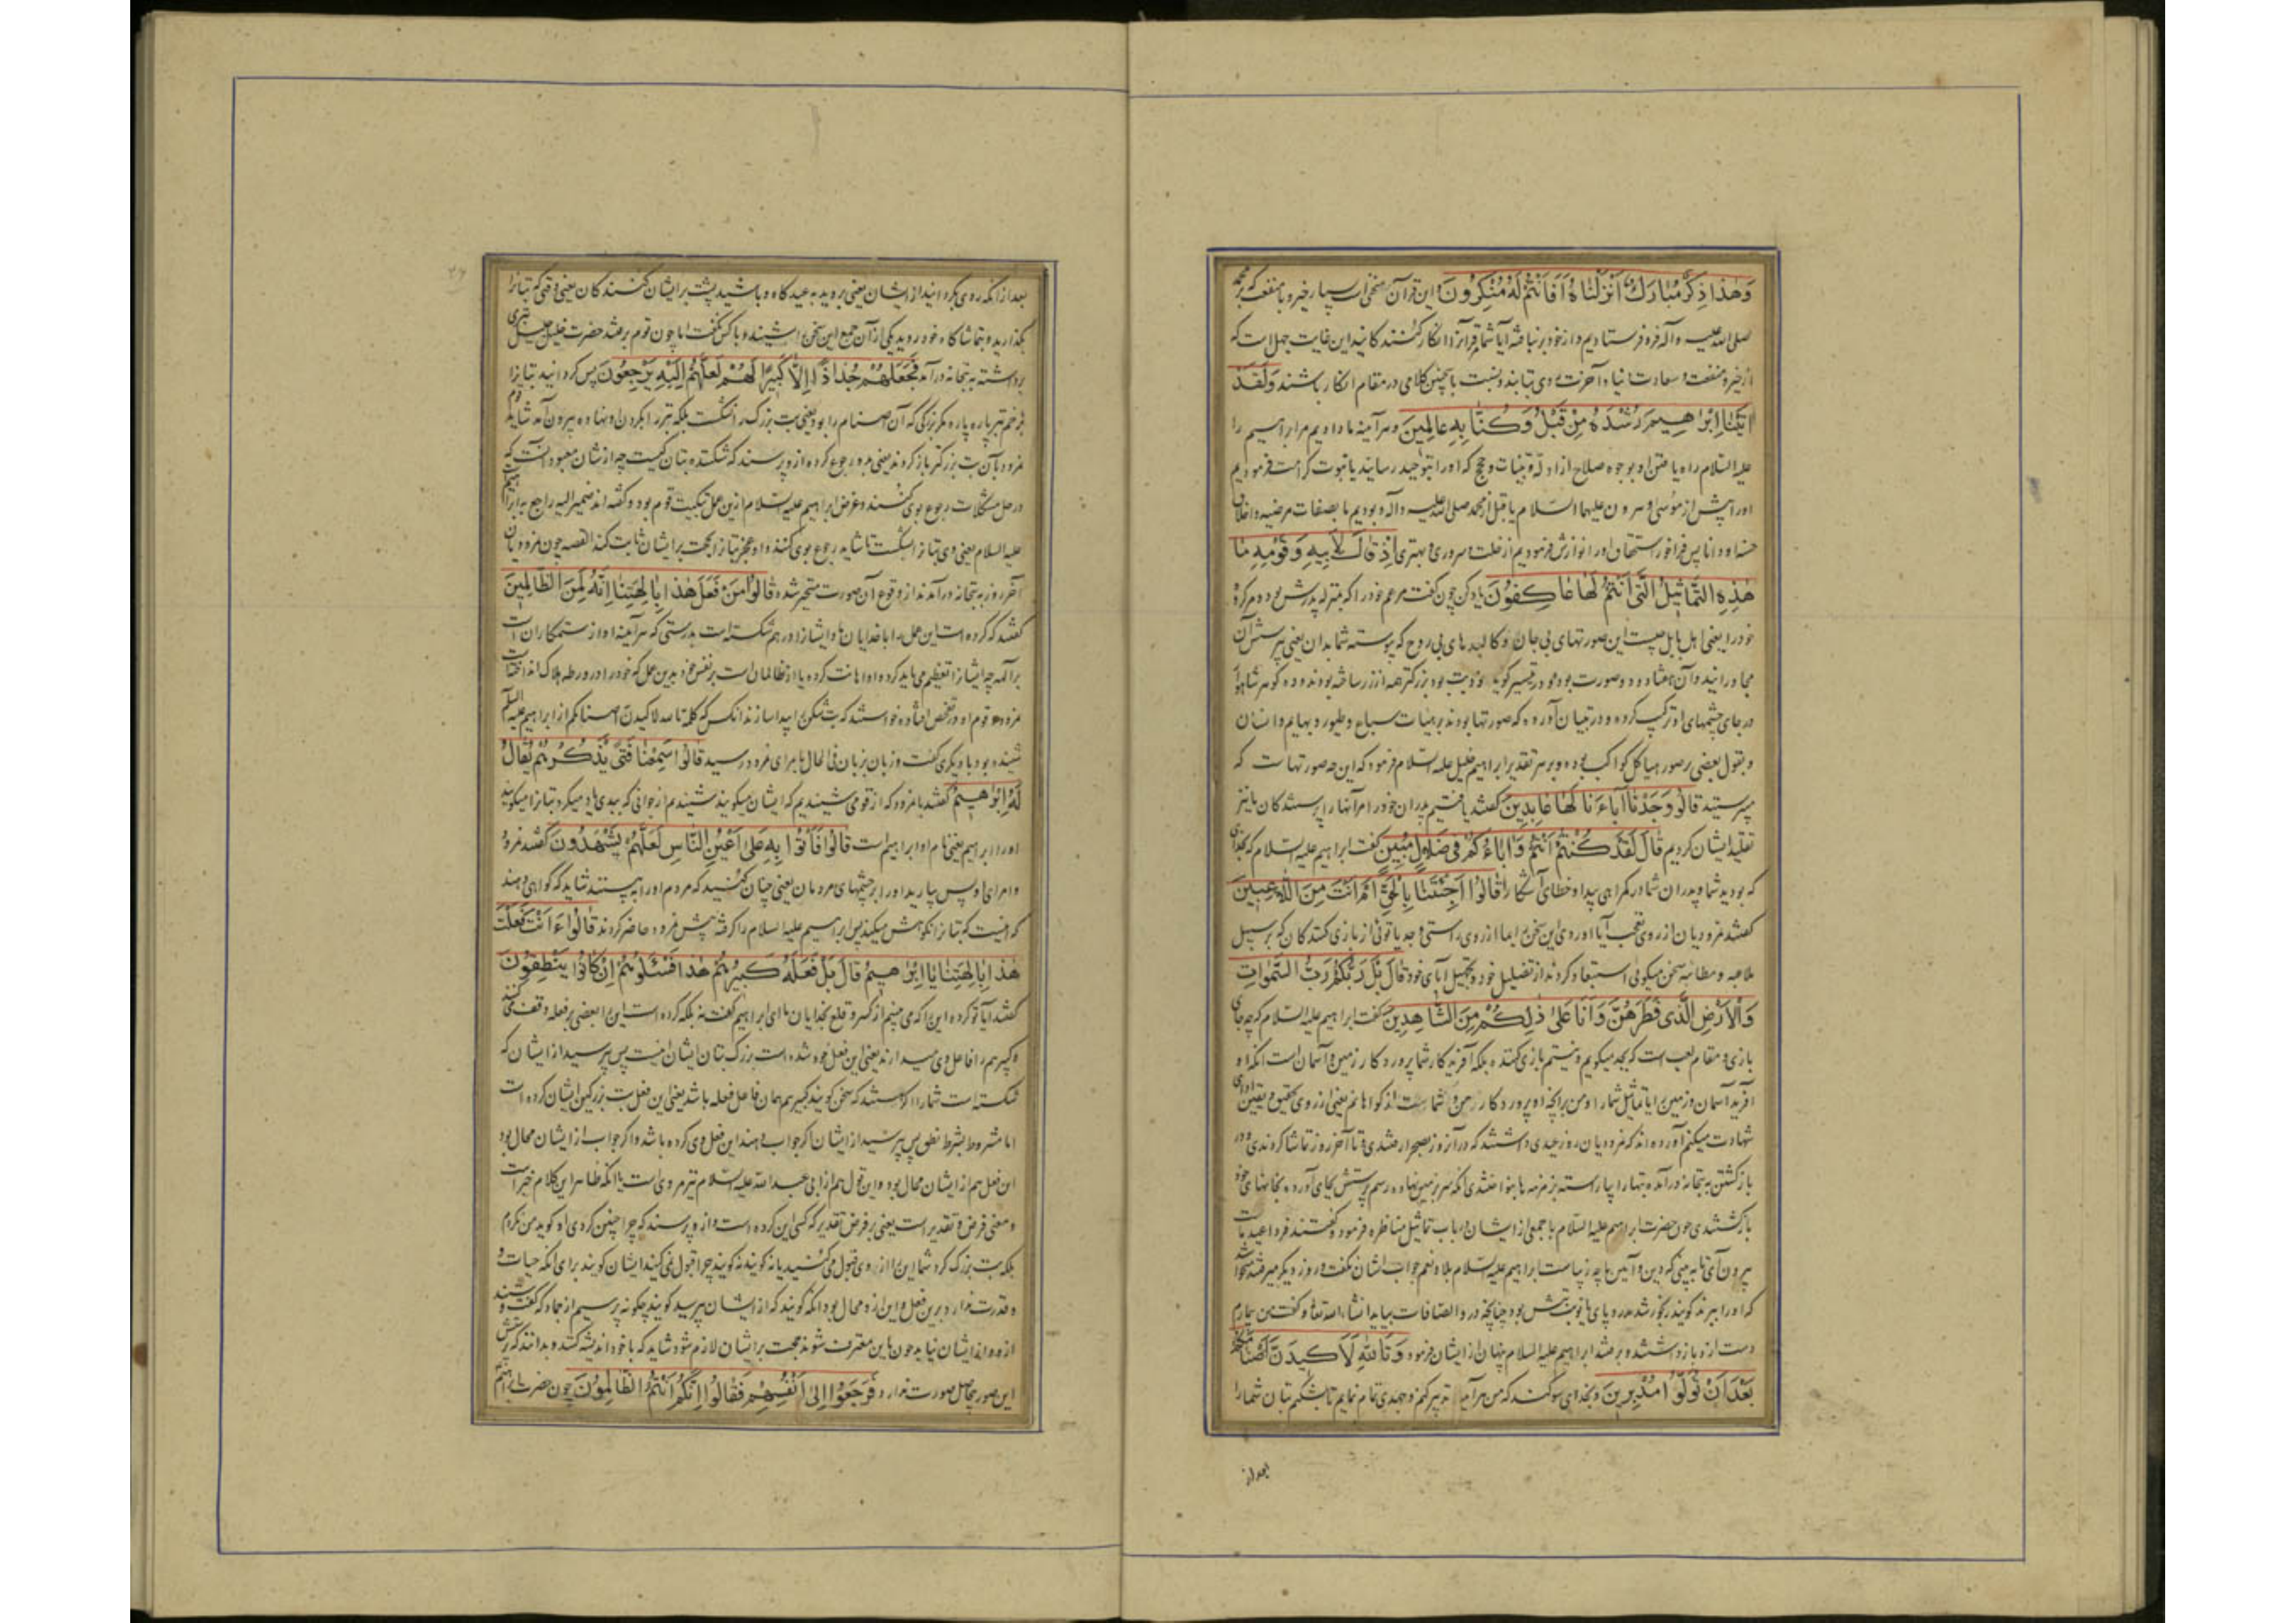 وَهٰذَا ذِكْرٌ مُبَارَكٌ اَنْزَلْنَاهُ اَفَاَنْتُمْ لَهُ مُنْكِرُونَ و این قرآن سخنی است بسیار خیر و با منفعت که بر محمد
صلی الله علیه و آله فرو فرستادیم و از خود بر نبافته آیا شما قرآنرا انکار کنندگانید این غایت جهل است که
از خیر و منفعت و سعادت دنیا و آخرت روی تابند و نسبت باین چنین کلامی در مقام انکار باشند وَلَقَدْ
اٰتَيْنَا اِبْرٰاهِيمَ رُشْدَهُ مِنْ قَبْلُ وَكُنَّا بِهِ عَالِمِينَ و هر آینه ما دادیم مر ابراهیم را
علیه السلام راه یافتن او بوجوه صلاح از ادله و بینات و حجج که او را بتوحید رسانید یا نبوت کرامت فرمودیم
او را پیش از موسی و هرون علیهما السلام یا قبل از محمد صلی الله علیه و آله و بودیم ما بصفات مرضیه و اخلاق
حسنه او دانا پس فراخور استحقاق او را نوازش فرمودیم از خلت و سروری و بهتری اِذْ قَالَ لِاَبِيهِ وَقَوْمِهِ مَا
هٰذِهِ التَّمَاثِيلُ الَّتِي اَنْتُمْ لَهَا عَاكِفُونَ یاد کن چون گفت مر عم خود را که بمنزله پدرش بود و مر گروه
خود را یعنی اهل بابل چیست این صورتهای بی جان و کالبدهای بی روح که پیوسته شما بدان یعنی پرستش آن
مجاورانید و آن هفتاد و دو صورت بود و در تیسیر گوید نود بت بود بزرگتر همه از زر ساخته بودند و دو گوهر شاهوار
در جای چشمهای او ترکیب کرده و در تبیان آورده که صورتها بودند بر هیئات سباع و طیور و بهایم و انسان
و بقول بعضی بر صور هیاکل کواکب بوده و بر هر تقدیر ابراهیم خلیل علیه السلام فرمود که این چه صورتهاست که
میپرستید قَالُوا وَجَدْنَا اٰبَاءَنَا لَهَا عَابِدِينَ گفتند یافتیم پدران خود را مر آنها را پرستندگان ما نیز
تقلید ایشان کردیم قَالَ لَقَدْ كُنْتُمْ اَنْتُمْ وَاٰبَاؤُكُمْ فِي ضَلَالٍ مُبِينٍ گفت ابراهیم علیه السلام که بخدای
که بودید شما و پدران شما در گمراهی پیدا و خطای آشکارا قَالُوا اَجِئْتَنَا بِالْحَقِّ اَمْ اَنْتَ مِنَ اللَّاعِبِينَ
گفتند نمرودیان از روی تعجب آیا آوردی این سخن بما از روی راستی و جد یا توئی از بازی کنندگان که بر سبیل
ملاعبه و مطایبه سخن میگوئی استبعاد کردند از تضلیل خود و تجهیل آبای خود قَالَ بَلْ رَبُّكُمْ رَبُّ السَّمٰوَاتِ
وَالْاَرْضِ الَّذِي فَطَرَهُنَّ وَاَنَا عَلٰى ذٰلِكُمْ مِنَ الشَّاهِدِينَ گفت ابراهیم علیه السلام که چه جای
بازی و مقام لعب است که بجد میگویم و نیستم بازی کننده بلکه آفریدگار شما پروردگار زمین و آسمان است آنکه او
آفرید آسمان و زمین را یا تماثیل شما را و من بر آنچه او پروردگار من و شماست از گواهانم یعنی از روی تحقیق و یقین ادای
شهادت میکنم آورده اند که نمرودیان روز عیدی داشتند که در آن روز بصحرا رفتندی و تا آخر روز تماشا کردندی و در
بازگشتن به بتخانه درآمده بتها را بیاراسته زمزمه ها بنواختندی آنکه سر بر زمین نهاده رسم پرستش بجای آورده بخانهای خود
بازگشتندی چون حضرت ابراهیم علیه السلام با جمعی از ایشان در باب تماثیل مناظره فرمود گفتند فردا عید ماست
بیرون آی تا به بینی که دین و آئین ما چه زیباست ابراهیم علیه السلام بلا و نعم جواب ایشان نگفت و روز دیگر میرفتند خواستند
که او را ببرند گویند رنجور شد در پای ها نوبتش بود چنانچه در والصافات بیاید انشاء الله تعالی و گفت من بیمارم
دست از او باز داشتند و برفتند ابراهیم علیه السلام پنهان از ایشان فرمود وَتَاللّٰهِ لَاَكِيدَنَّ اَصْنَامَكُمْ
بَعْدَ اَنْ تُوَلُّوا مُدْبِرِينَ و بخدای سوگند که من هر آینه تدبیر کنم و جهدی تمام نمایم تا بشکنم بتان شما را
بعد از
بعد از آنکه روی بگردانید از ایشان یعنی بروید به عیدگاه و باشید پشت بر ایشان کنندگان یعنی وقتی که بتانرا
بگذارید و بتماشاگاه خود روید یکی از آن جمع این سخن را شنید و با کس نگفت اما چون قوم برفتند حضرت خلیل جلیل تبری
برداشته به بتخانه درآمد فَجَعَلَهُمْ جُذَاذًا اِلَّا كَبِيرًا لَهُمْ لَعَلَّهُمْ اِلَيْهِ يَرْجِعُونَ پس گردانید بتانرا
بزخم تبر پاره پاره مگر بزرگی که آن اصنام را بود یعنی بت بزرگ را نشکست بلکه تبر را بگردن او نهاده بیرون آمد شاید قوم
نمرود بآن بت بزرگتر باز گردند یعنی بدو رجوع کرده از و پرسند که شکننده بتان کیست چه از شان معبود آنست که
در حل مشکلات رجوع بوی کنند و غرض ابراهیم علیه السلام ازین عمل تبکیت قوم بود و گفته اند ضمیر الیه راجع به ابراهیم
علیه السلام یعنی وی بتانرا شکست تا شاید رجوع بوی کنند و او عجز بتانرا بحجت بر ایشان ثابت کند القصه چون نمرودیان
آخر روز به بتخانه درآمدند از وقوع آن صورت متحیر شده قَالُوا مَنْ فَعَلَ هٰذَا بِاٰلِهَتِنَا اِنَّهُ لَمِنَ الظَّالِمِينَ
گفتند که کرده است این عمل را با خدایان ما و ایشانرا در هم شکسته است بدرستی که هر آینه او از ستمکاران است
بر آلهه چه ایشانرا تعظیم می باید کرد و او اهانت کرده یا از ظالمان است بر نفس خود بدین عمل که خود را در ورطه هلاک انداخته است
نمرود و قوم او در تفحص افتاده خواستند که بت شکن را پیدا سازند آنکس که کلمه تالله لاکیدن اصنامکم از ابراهیم علیه السلام
شنیده بود با دیگری گفت و زبان بزبان فی الحال بامرای نمرود رسید قَالُوا سَمِعْنَا فَتًى يَذْكُرُهُمْ يُقَالُ
لَهُ اِبْرٰاهِيمُ گفتند با نمرود که از قومی شنیدیم که ایشان میگویند شنیدم از جوانی که ببدی یاد میکرد بتانرا میگویند
او را ابراهیم یعنی نام او ابراهیم است قَالُوا فَأْتُوا بِهِ عَلٰى اَعْيُنِ النَّاسِ لَعَلَّهُمْ يَشْهَدُونَ گفتند نمرود
و امرای او پس بیارید او را بر چشمهای مردمان یعنی چنان کنید که مردم او را به بینند شاید که گواهی دهند
که اینست که بتانرا نکوهش میکند پس ابراهیم علیه السلام را گرفته پیش نمرود حاضر کردند قَالُوا ءَاَنْتَ فَعَلْتَ
هٰذَا بِاٰلِهَتِنَا يَا اِبْرٰاهِيمُ قَالَ بَلْ فَعَلَهُ كَبِيرُهُمْ هٰذَا فَسْئَلُوهُمْ اِنْ كَانُوا يَنْطِقُونَ
گفتند آیا تو کرده این را که می بینم از کسر و قلع بخدایان ما ای ابراهیم گفت نه بلکه کرده است این را بعضی بر فعله وقف میکنند
و کبیرهم را فاعل وی میدارند یعنی این فعل خود شده است بزرگ بتان ایشان اینست پس بپرسید از ایشان که
شکسته است شما را اگر هستند که سخن گویند کبیرهم همان فاعل فعله باشد یعنی این فعل بت بزرگین ایشان کرده است
اما مشروط بشرط نطق پس بپرسید از ایشان اگر جواب دهند این فعل وی کرده باشد و اگر جواب از ایشان محال بود
این فعل هم از ایشان محال بود و این قول هم از ابی عبد الله علیه السلام نیز مرویست یا آنکه ظاهر این کلام خبر است
و معنی فرض و تقدیر است یعنی بر فرض تقدیر که کسی این کرده است و از و پرسند که چرا چنین کردی او گوید من نکردم
بلکه بت بزرگ کرد شما این را از وی قبول می کنید یا نه گویند نه گویند چرا قبول نمی کنید ایشان گویند برای آنکه حیات و
و قدرت ندارد برین فعل و این از و محال بود آنگه گویند که از ایشان بپرسید گویند چگونه پرسیم از جماد که گفت و شنید
از و و از ایشان نیاید چون باین معترف شوند حجت بر ایشان لازم شود شاید که با خود اندیشه کنند و بدانند که پرستش
این صور بیحاصل صورت ندارد فَرَجَعُوا اِلٰى اَنْفُسِهِمْ فَقَالُوا اِنَّكُمْ اَنْتُمُ الظَّالِمُونَ چون حضرت ابراهیم